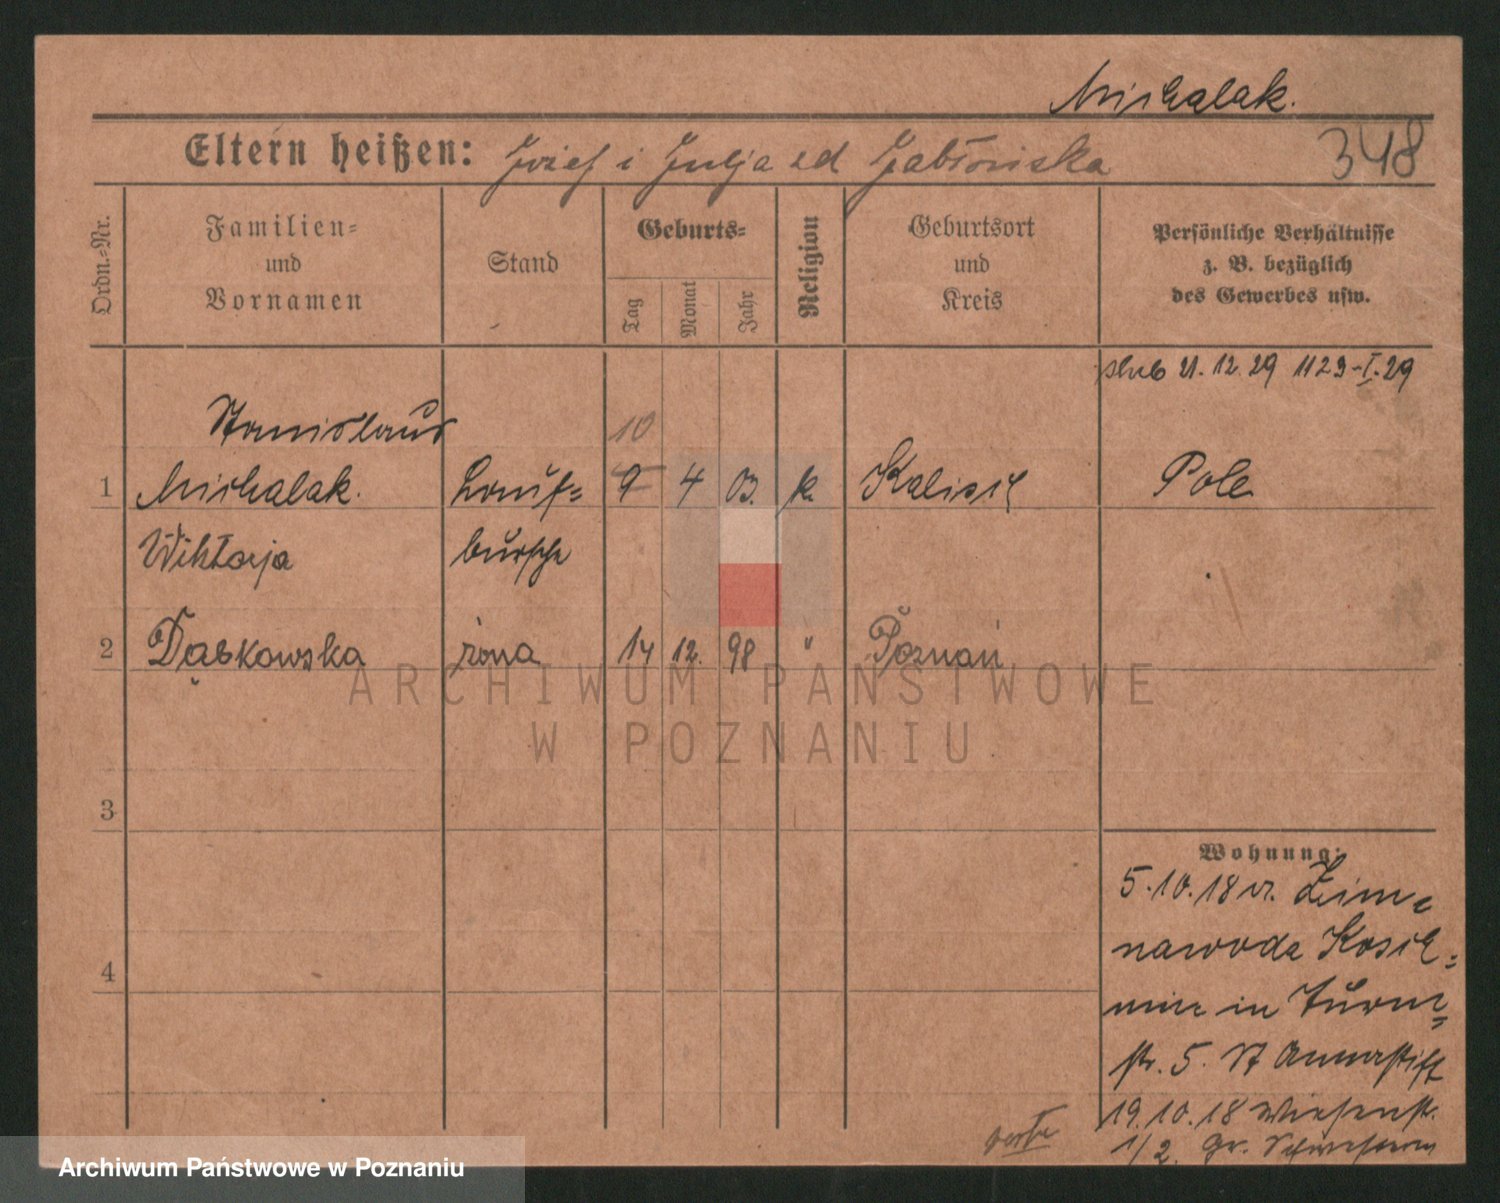 Michalak.
Eltern heißen: Józef i Julja zd Jabłońska 348
Ordn.-Nr.
Familien-
und
Vornamen
Stand
Geburts-
Tag
Monat
Jahr
Religion
Geburtsort
und
Kreis
Persönliche Verhältnisse
z. B. bezüglich
des Gewerbes usw.
ślub 21.12.29 1129-I-29
Stanislaus 10
1 Michalak. Lauf= 9 4 03. k. Kalisch Pole
Wiktorja bursche
2 Dąbkowska żona 14 12. 98 " Poznań
3
4
Wohnung:
5.10.18 v. Zim=
nawoda Kosch=
min in Turm=
str. 5. St Annastift
19.10.18 Wiesenstr.
1/2. Gr. Schwestern
ARCHIWUM PAŃSTWOWE
W POZNANIU
Archiwum Państwowe w Poznaniu